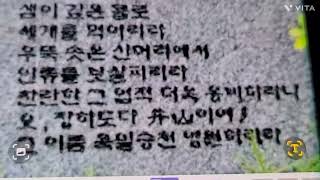 VITA
샘이 깊은 물로
세계를 먹이리라
우뚝 솟은 산머리에서
인류를 보살피리라
찬란한 그 업적 더욱 풍비하리니
오, 장하도다 井山이여!
그 이름 욱일승천 영원하리라